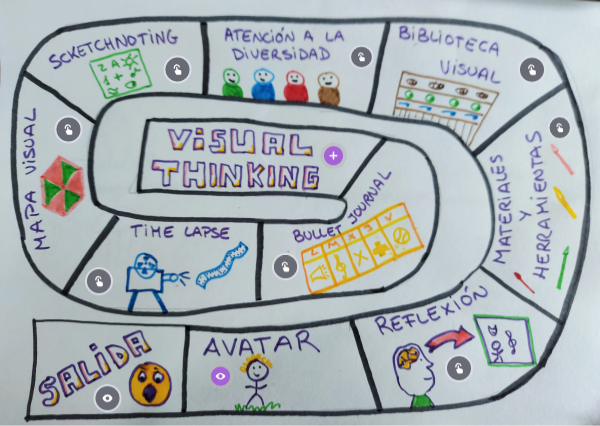 SCKETCHNOTING
ATENCIÓN A LA
DIVERSIDAD
BIBLIOTECA
VISUAL
MAPA VISUAL
VISUAL
THINKING
MATERIALES
Y
HERRAMIENTAS
TIME LAPSE
BULLET JOURNAL
L M X J V
SALIDA
AVATAR
REFLEXIÓN